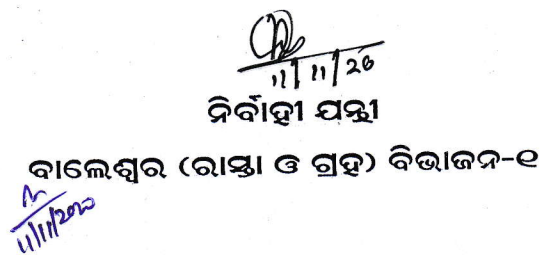 11/11/20
ନିର୍ବାହୀ ଯନ୍ତ୍ରୀ
ବାଲେଶ୍ୱର (ରାସ୍ତା ଓ ଗ୍ରହ) ବିଭାଜନ-୧
11/11/2020